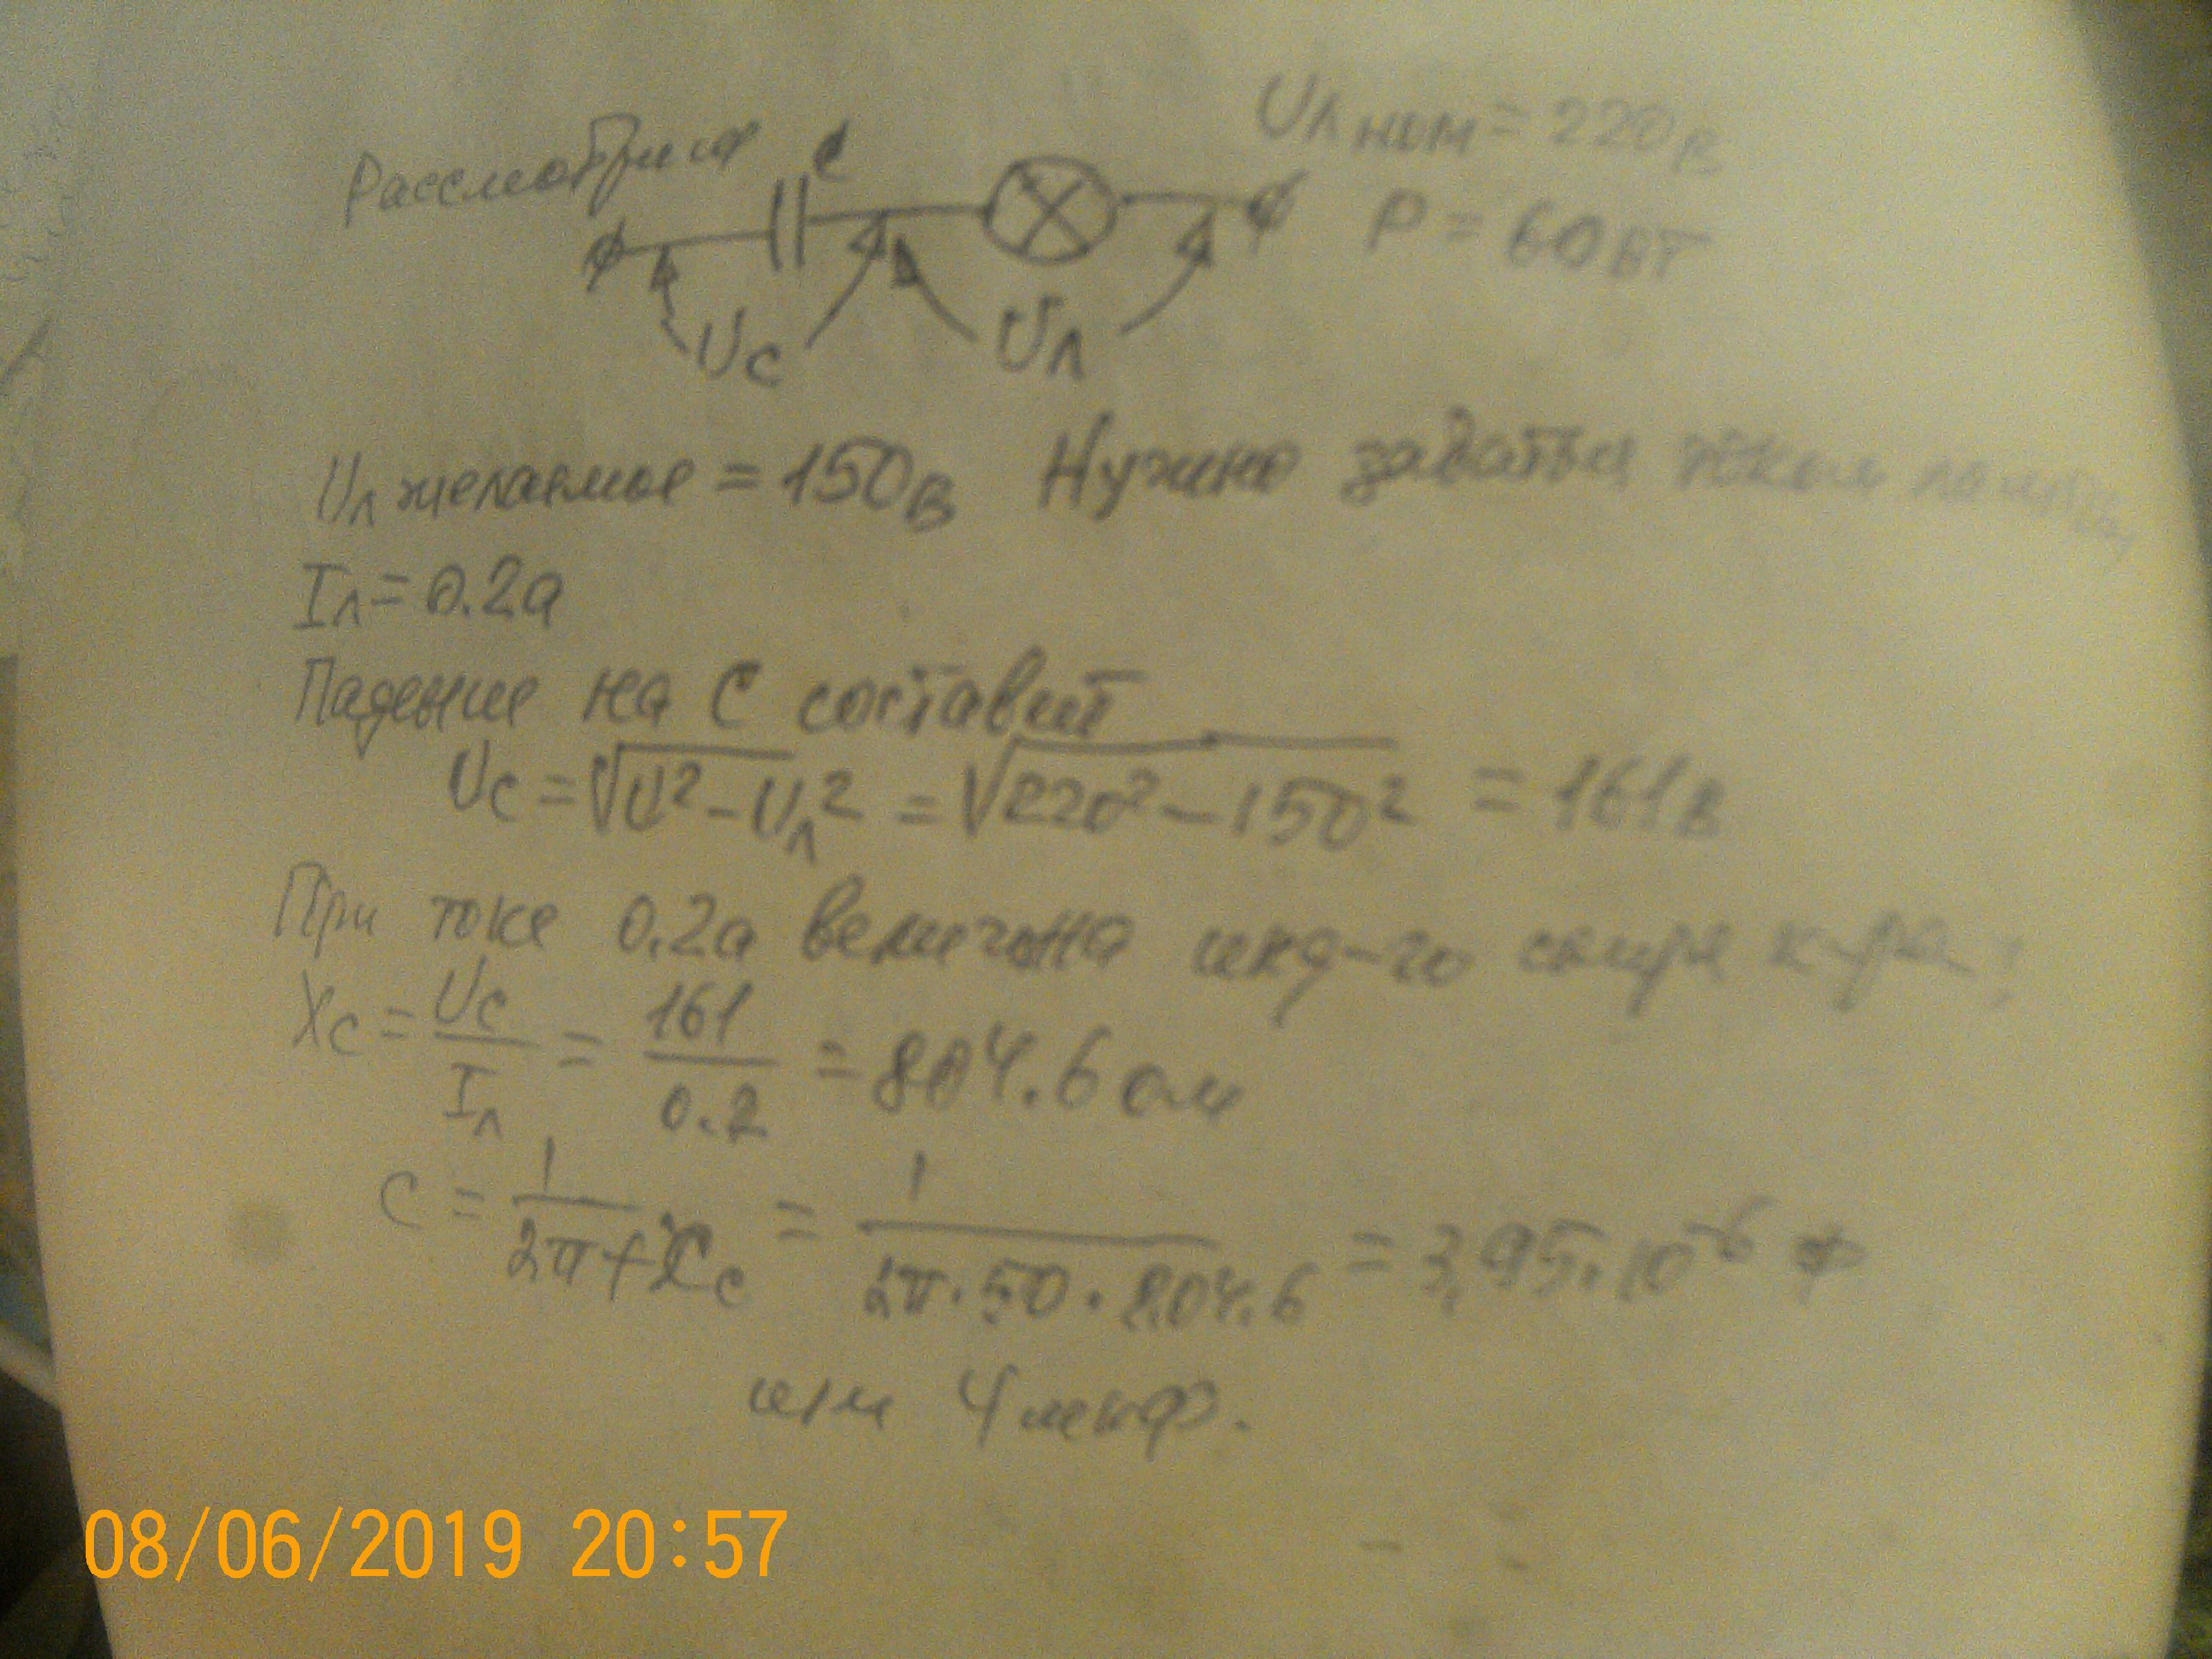 Рассмотрим
C
Uл ном = 220в
P = 60вт
Uc
Uл
Uл желаемое = 150в Нужно задаться током лампы,
Iл = 0.2а
Падение на C составит
Uc = √U² - Uл² = √220² - 150² = 161в
При токе 0.2а величина инд-го сопр к-ра:
Xc = Uc / Iл = 161 / 0.2 = 804.6 ом
C = 1 / 2πfXc = 1 / 2π·50·804.6 = 3,95·10⁻⁶ ф
или 4 мкф.
08/06/2019 20:57